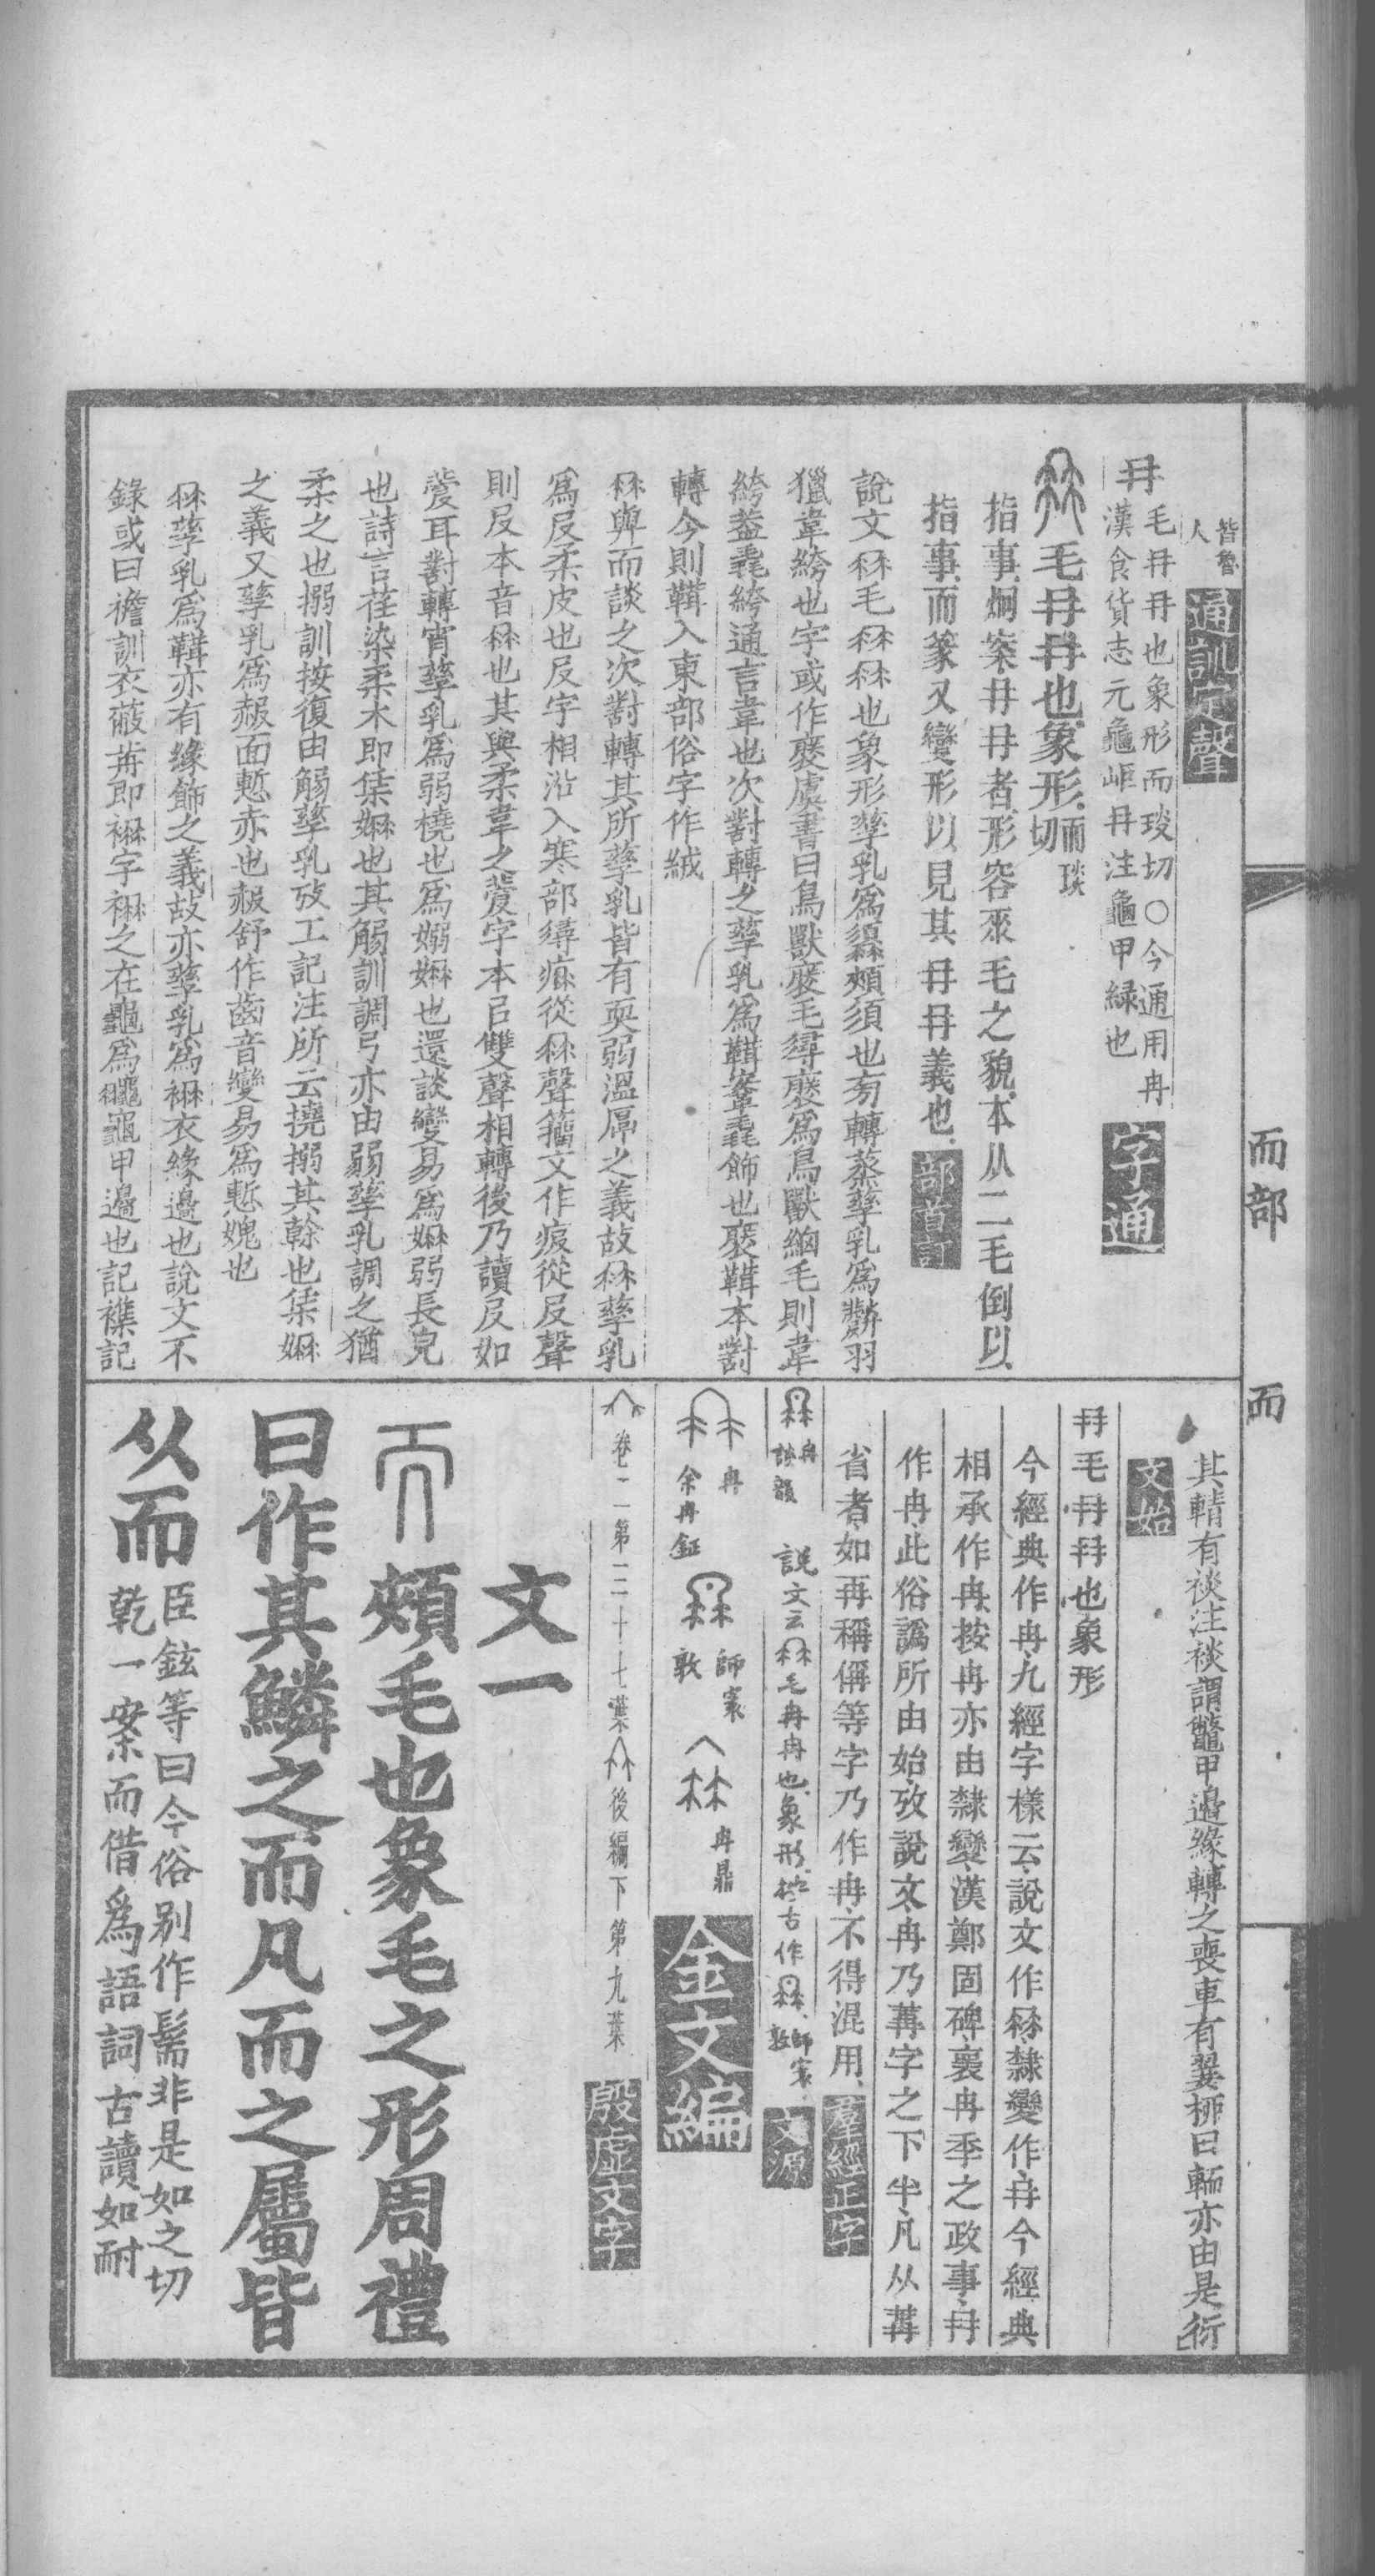 皆魯
人
通訓定聲
冄毛冄冄也象形而琰切○今通用冉
漢食貨志元龜岠冄注龜甲緣也
字通
毛冄冄也象形而琰切
指事炯案冄冄者形容衆毛之貌本从二毛倒以
指事而篆又變形以見其冄冄義也
部首訂
說文冄毛冄冄也象形孳乳爲
頰須也旁轉蒸孳乳爲
羽
獵韋絝也字或作褎虞書曰鳥獸褎毛
鳥獸
毛則韋
絝蓋毳絝通言韋也次對轉之孳乳爲鞲
毳飾也
本對
轉今則鞲入東部俗字作絨
冄與而談之次對轉其所孳乳皆有耎弱溫
之義故冄孳乳
爲㞋柔皮也㞋字相沿入寒部
從冄聲籀文作
從㞋聲
則㞋本音冄也其與柔韋之㼱字本㠯雙聲相轉後乃讀㞋如
㼱耳對轉宵孳乳爲弱橈也爲嫋姌也還談變易爲姌弱長皃
也詩言荏染柔木即集姌也其觸訓調弓亦由弱孳乳調之猶
柔之也搦訓按復由觸孳乳攷工記注所云撓搦其榦也集姌
之義又孳乳爲赧面慙赤也赧舒作齒音變易爲慙媿也
冄孳乳爲鞲亦有緣飾之義故亦孳乳爲袡衣緣邊也說文不
錄或曰襜訓衣蔽前即袡字袡之在龜爲
龜甲邊也記襍記
而部
而
其輤有裧注裧謂鼈甲邊緣轉之喪車有翣柳曰輀亦由是衍
文始
冄毛冄冄也象形
今經典作冉九經字樣云說文作冄隸變作冉今經典
相承作冉按冉亦由隸變漢鄭固碑襄冉季之政事冄
作冉此俗譌所由始攷說文冉乃冓字之下半凡从冓
省者如再稱偁等字乃作冉不得混用
羣經正字
冉
談韻
說文云
毛冉冉也象形按古作
師寰
敦
文源
冉
余冉鉦
師寰
敦
冉鼎
金文編
卷二第二十七葉
後編下第九葉
殷虛文字
文一
而頰毛也象毛之形周禮
曰作其鱗之而凡而之屬皆
从而臣鉉等曰今俗別作髵非是如之切
乾一案而借爲語詞古讀如耐